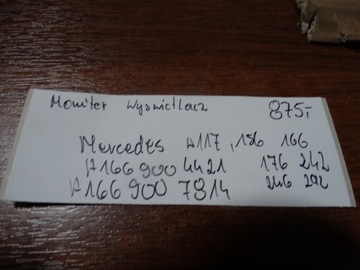 Monitor Wyświetlacz 875,-
Mercedes W117, 156 166
A166 900 4421 176 242
A166 900 7814 246 292